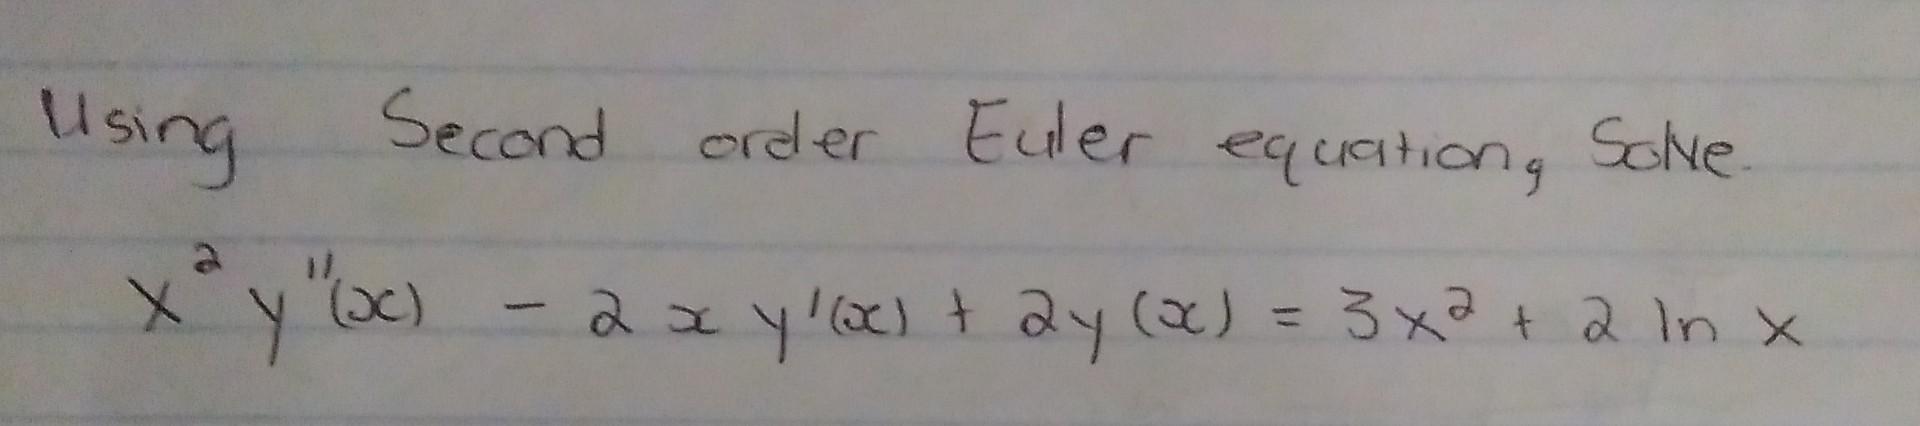 Using Second order Euler equation, Solve.
x² y''(x) - 2 x y'(x) + 2y (x) = 3x² + 2 ln x